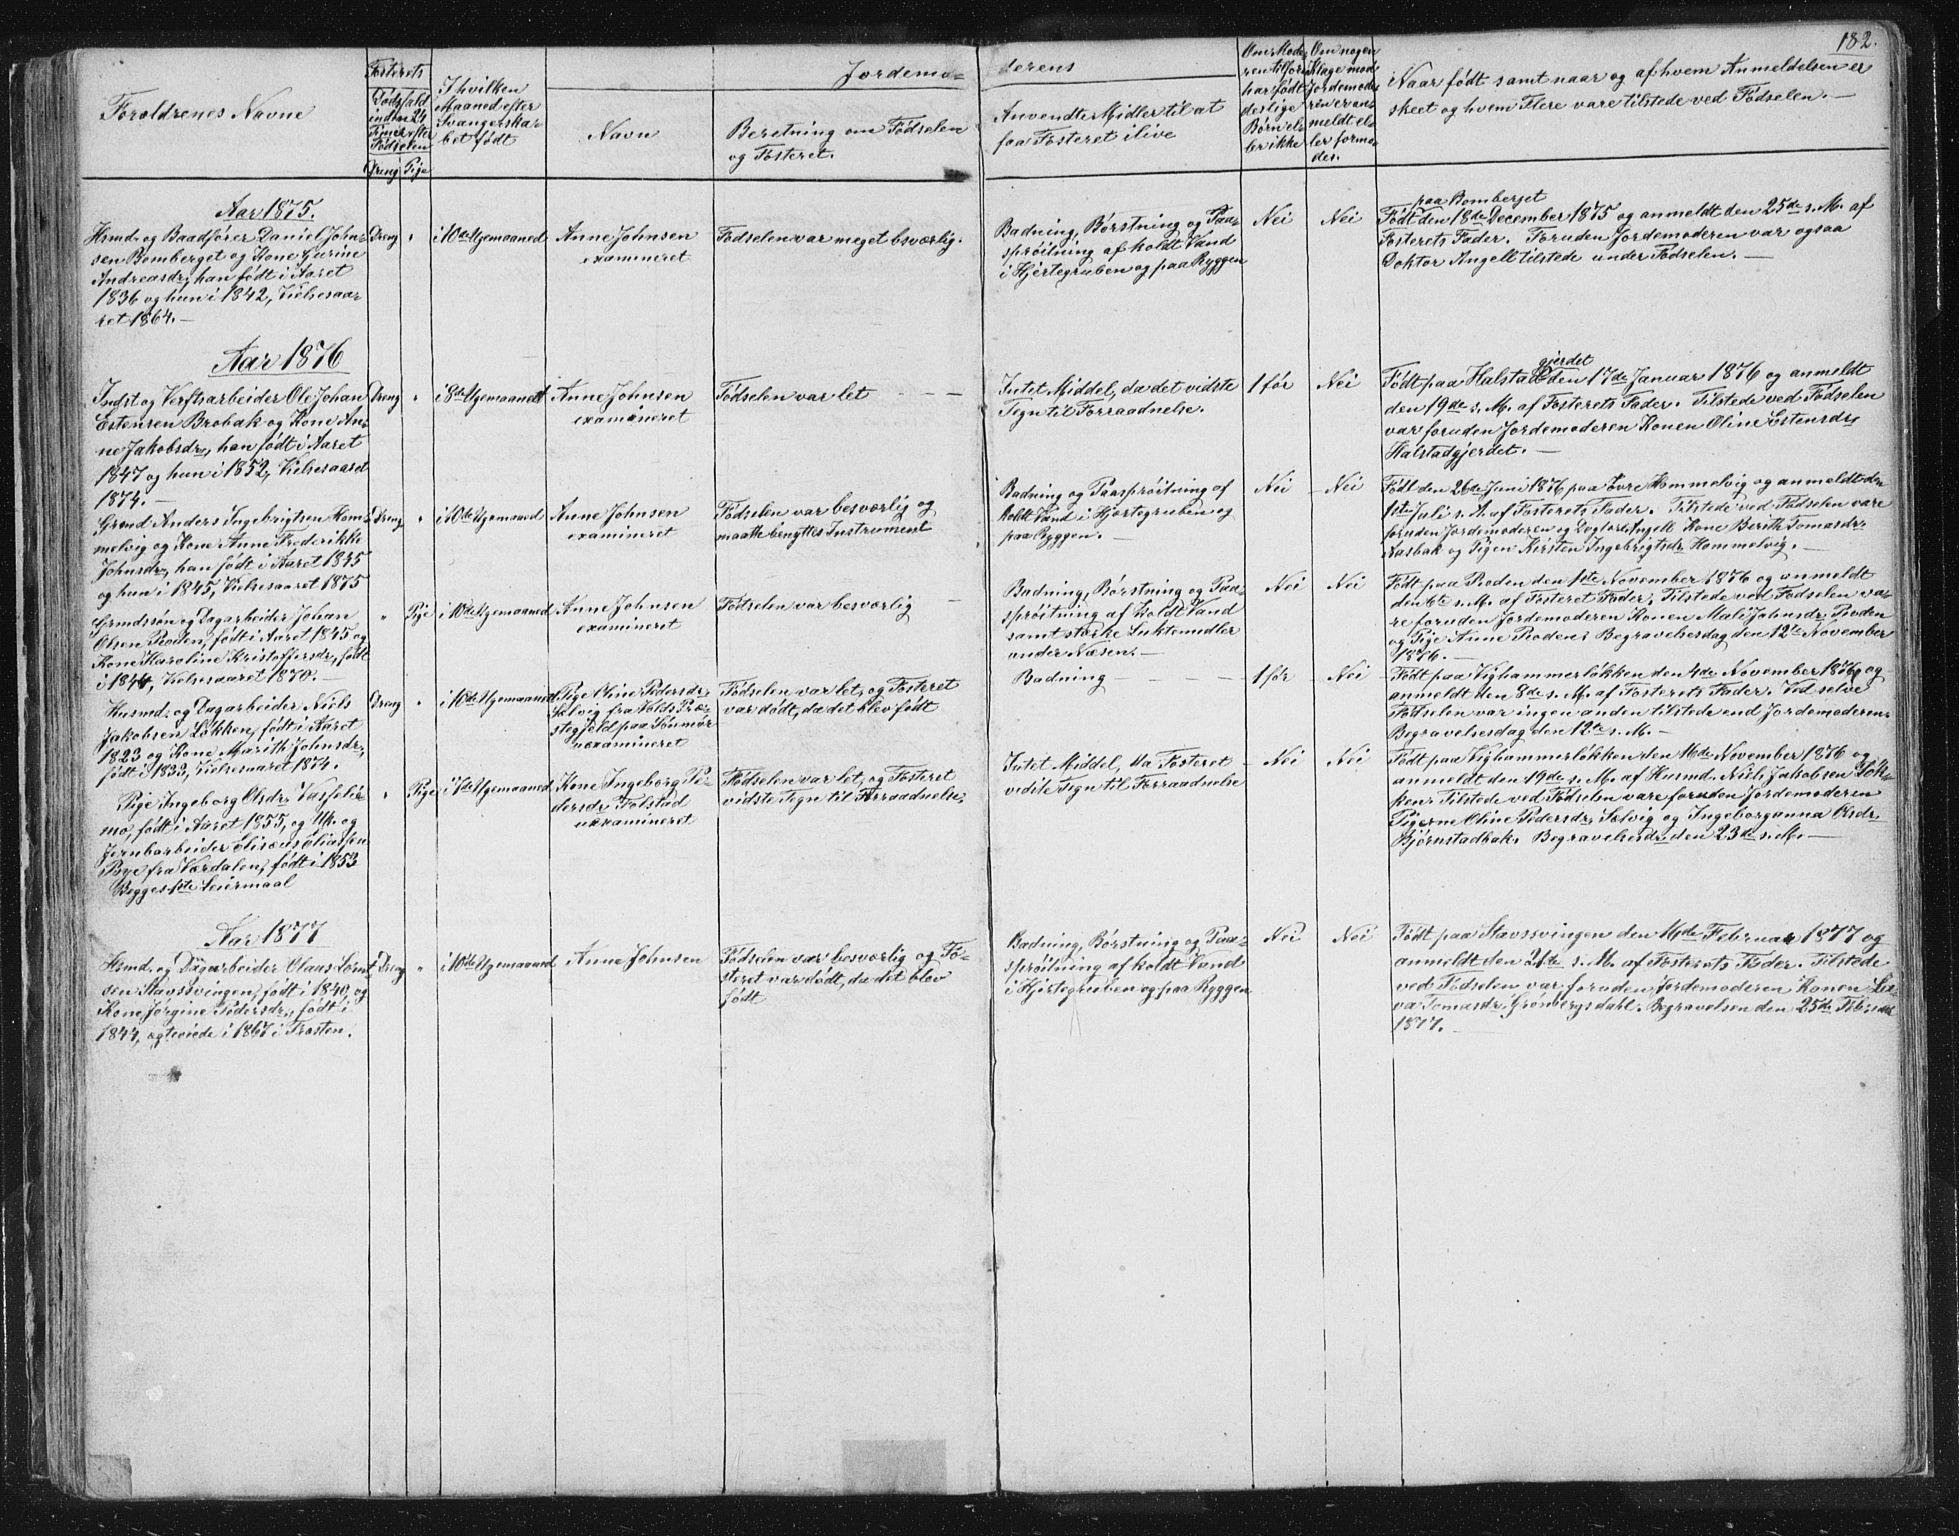 182.
Forældrenes Navne
Fosterets
Dødsfald
inden 24
Timer efter
Fødselen
Dreng Pige
I hvilken
Maaned efter
Svangerska-
bet født
Jordemo-
Navn
Beretning om Fødselen
og Fosteret.
derens
Anvendte Midler til at
faa Fosteret ilive
Om Mode-
ren tilforn
har født
deslige
Børn el-
ler ikke
Om nogen
Klage mod
Jordemode-
ren er an-
meldt el-
ler forme-
des.
Naar født samt naar og af hvem Anmeldelsen er
skeet og hvem Flere vare tilstede ved Fødselen. —
Aar 1875.
Hsmd. og Baadfører Daniel John-
sen Bomberget og Kone Gurine
Andreasdr, han født i Aaret
1836 og hun i 1842, Vielsesaa-
ret 1864. —
Dreng
"
i 10de Ugemaaned
Anne Johnsen
examineret
Fødselen var meget besværlig.
Badning, Børstning og Paa-
sprøitning af koldt Vand
i Hjertegruben og paa Ryggen
Nei
Nei
paa Bomberget
Født den 18de December 1875 og anmeldt den 25de s. M. af
Fosterets Fader. Foruden Jordemoderen var ogsaa
Doktor Angell tilstede under Fødselen. —
Aar 1876
Indst og Verftsarbeider Ole Johan
Estensen Brobak og Kone An-
ne Jakobsdr, han født i Aaret
1847 og hun i 1852, Vielsesaaret
1874. —
Dreng
"
i 8de Ugemaaned
Anne Johnsen
examineret
Fødselen var let — — —
Intet Middel, da det vidste
Tegn til Forraadnelse.
1 før
Nei
gjerdet
Født paa Halstad den 17de Januar 1876 og anmeldt
den 19de s. M. af Fosterets Fader. Tilstede ved Fødselen
var foruden Jordemoderen Konen Oline Estensdr
Halstadgjerdet. —
Grmd. Anders Ingebrigtsen Hom-
melvig og Kone Anne Frederikke
Johnsdr, han født i Aaret 1845
og hun i 1845, Vielsesaaret 1875
Dreng
"
i 10de Ugemaaned
Anne Johnsen
examineret
Fødselen var besværlig og
maatte benyttes Instrument
Badning og Paasprøitning af
koldt Vand i Hjertegruben og
paa Ryggen. —
Nei
Nei
Født den 26de Juni 1876 paa Øvre Hommelvig og anmeldt den
1ste Juli s. A. af Fosterets Fader. Tilstede ved Fødselen vare
foruden Jordemoderen og Doktor Angell Kone Berith Tomasdr
Aasbak og Pigen Kirsten Ingebrigtsdr Hommelvig. —
Grmdsøn og Dagarbeider Johan
Olsen Roden, født i Aaret 1845 og
Kone Karoline Kristoffersdr, født
i 1844, Vielsesaaret 1870. —
"
Pige
i 10de Ugemaaned
Anne Johnsen
examineret
Fødselen var besværlig —
Badning, Børstning og Paa-
sprøitning af koldt Vand
samt stærke Luktemidler
under Næsen. —
Nei
Nei
Født paa Roden den 1ste November 1876 og anmeldt
den 6te s. M. af Fosteret Fader. Tilstede ved Fødselen va-
re foruden Jordemoderen Konen Mali Johnsdr Roden
og Pige Anne Roden. Begravelsesdag den 12te November
1876. —
Husmd. og Dagarbeider Niels
Jakobsen Løkken, født i Aaret
1823 og Kone Marith Johnsdr,
født i 1833, Vielsesaaret 1874.
Dreng
"
i 10de Ugemaaned
Pige Oline Pedersdr
Solvig fra Volds Præ-
stegjeld paa Sønmør
uexamineret
Fødselen var let, og Fosteret
var dødt, da det blev født
Badning — — — —
1 før
Nei
Født paa Vighammerløkken den 4de November 1876 og
anmeldt den 8de s. M. af Fosterets Fader. Ved selve
Fødselen var ingen anden tilstede end Jordemoderen.
Begravelsesdag den 12te s. M. —
Pige Ingeborg Olsdr Vasfelie-
mo, født i Aaret 1855, og Uk. og
Jernbarbeider Elisæus Eliassen
Bye fra Værdalen, født i 1853
Begges 1ste Leiermaal
"
Pige
i 7de Ugemaaned
Kone Ingeborg Pe-
dersdr Folstad
uexamineret
Fødselen var let, og Fosteret
vidste Tegn til Forraadnelse.
Intet Middel, da Fosteret
vidste Tegn til Forraadnelse
Nei
Nei
Født paa Vighammerløkken den 16de November 1876 og
anmeldt den 19de s. M. af Husmd. Niels Jakobsen Løk-
ken. Tilstede ved Fødselen vare foruden Jordemoderen
Pigerne Oline Pedersdr. Solvig og Ingeborganna Olsdr.
Bjørnstadbak. Begravelsesdr. den 23de s. M. —
Aar 1877
Hsmd. og Dagarbeider Olaus Lornt-
sen Stavssvingen, født i 1840, og
Kone Jørgine Pedersdr, født i
1844, ogteviede i 1867 i Frosten.
Dreng
"
i 10de Ugemaaned
Anne Johnsen
Fødselen var besværlig og Fo-
steret var dødt, da det blev
født
Badning, Børstning og Paa-
sprøitning af koldt Vand
i Hjertegruben og paa Ryggen
Nei
Nei
Født paa Stavssvingen den 16de Februar 1877 og
anmeldt den 21de s. M. af Fosterets Fader. Tilstede
ved Fødselen var foruden Jordemoderen Konen
Tomasdr Grønbergsdahl. Begravelsen den 25de Febr
1877. —